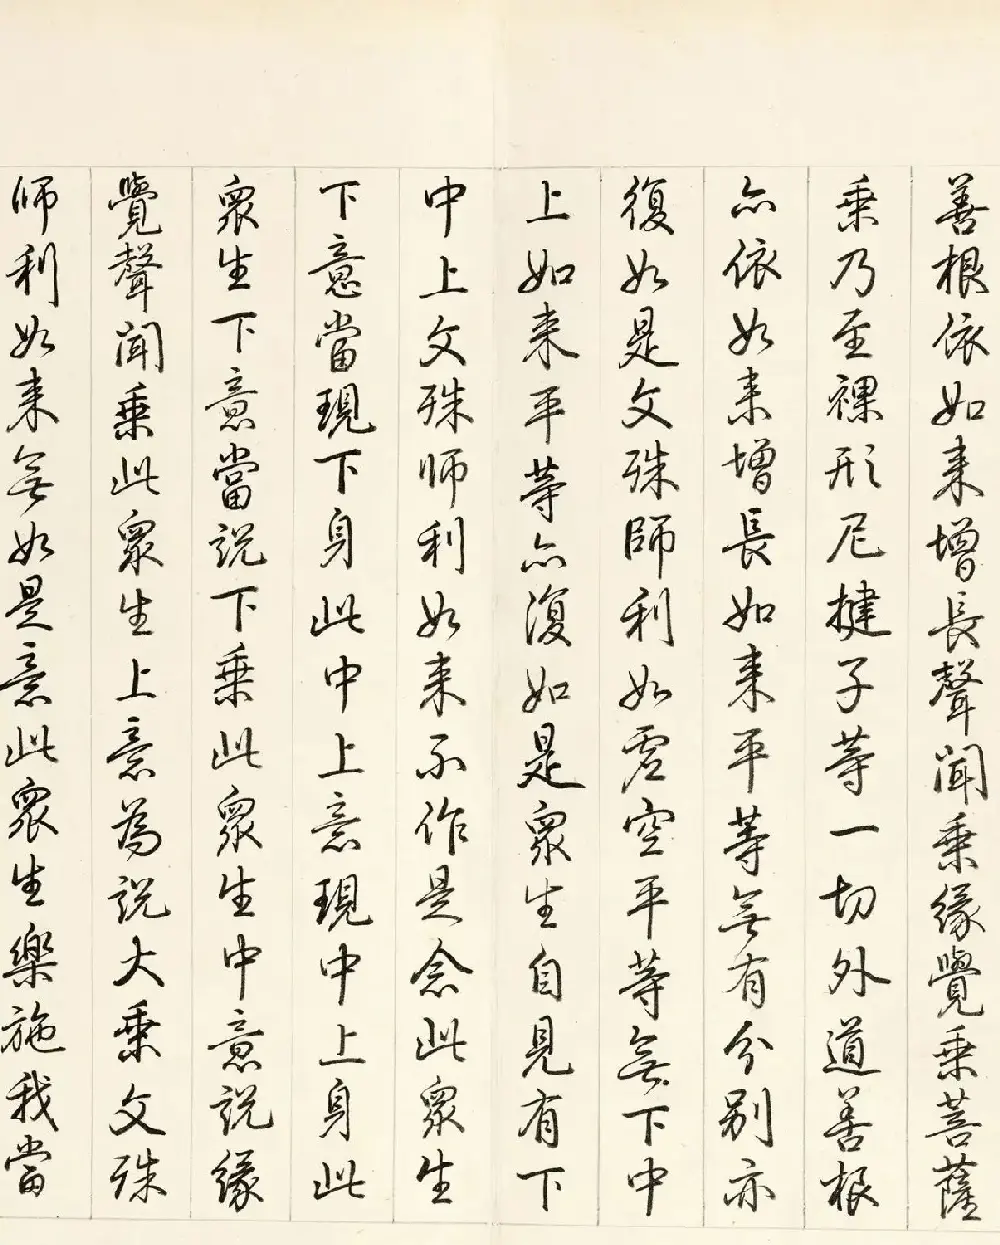 善根依如来增長聲聞乘緣覺乘菩薩
乘乃至裸形尼揵子等一切外道善根
亦依如来增長如来平等無有分别亦
復如是文殊師利如虚空平等無下中
上如来平等亦復如是衆生自見有下
中上文殊师利如来不作是念此衆生
下意當現下身此中上意現中上身此
衆生下意當説下乘此衆生中意説緣
覺聲聞乘此衆生上意為説大乘文殊
师利如来無如是意此衆生樂施我當